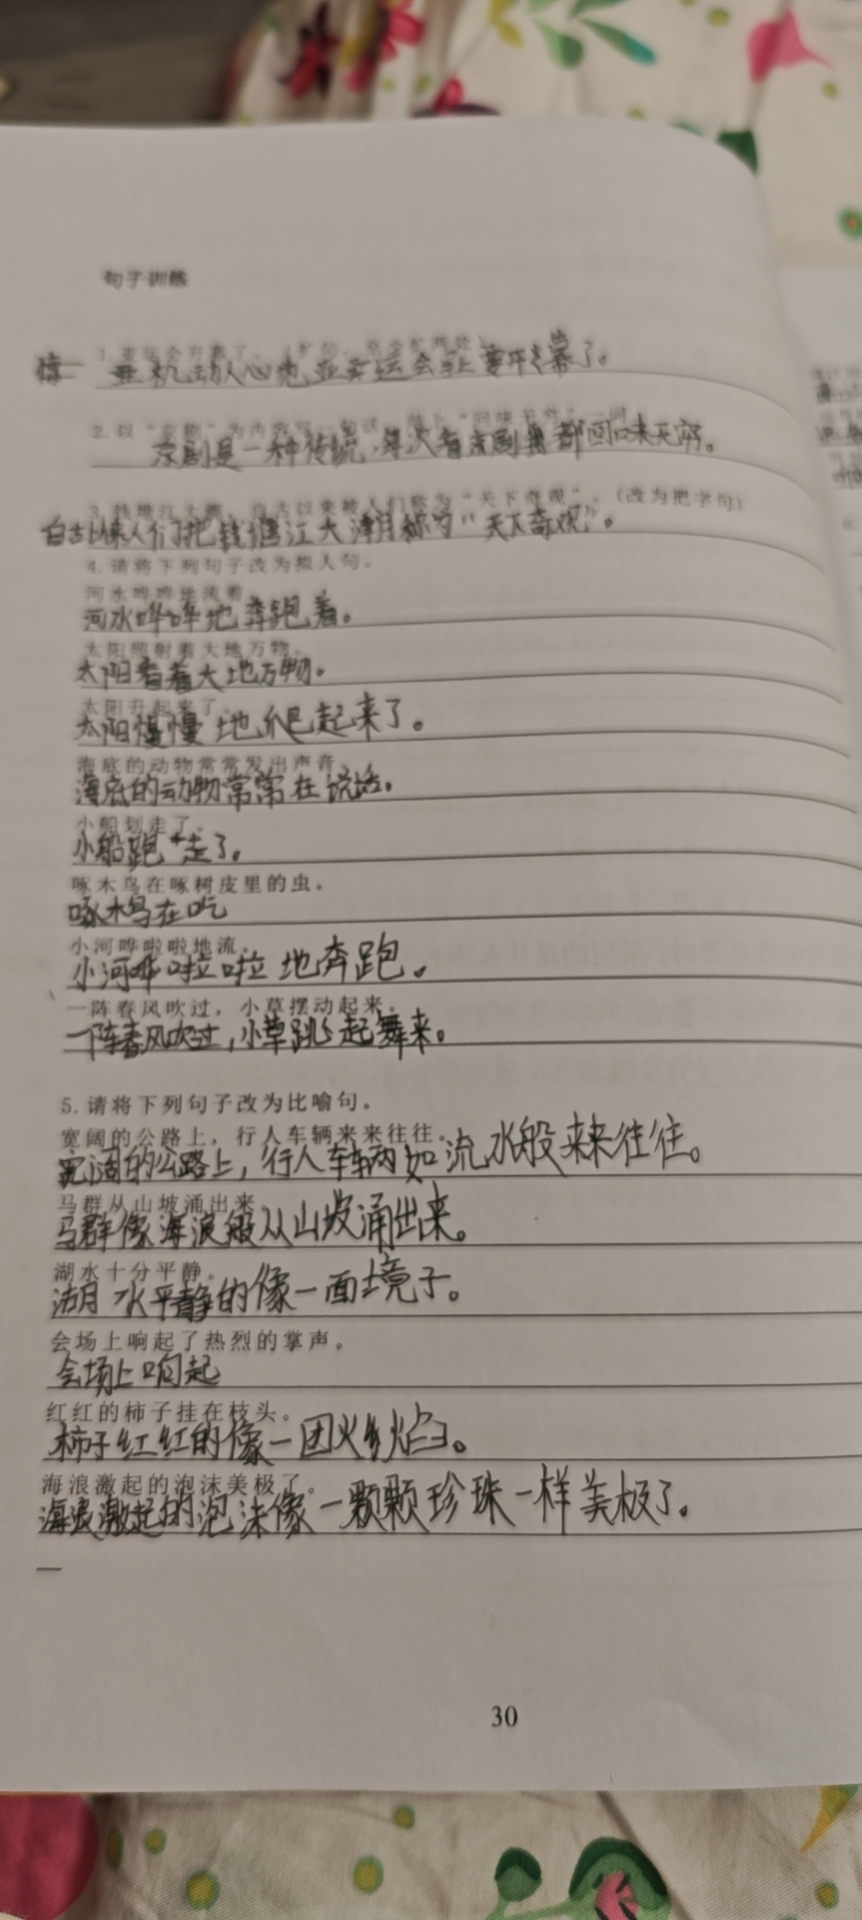 句子训练
1.亚运会开幕了。
动人心 亚运会 开幕了。
2.以“京剧”为内容写一句话，用上“回味无穷”一词
京剧是一种传统，每次看京剧 都回味无穷。
3.钱塘江大潮，自古以来被人们称为“天下奇观”。(改为把字句)
自古以来人们把钱塘江大潮称为“天下奇观”。
4.请将下列句子改为拟人句。
河水哗哗地流着
河水哗哗地奔跑着。
太阳照射着大地万物。
太阳看着大地万物。
太阳升起来了
太阳慢慢地爬起来了。
海底的动物常常发出声音
海底的动物常常在说话。
小船划走了。
小船跑走了。
啄木鸟在啄树皮里的虫。
啄木鸟在吃
小河哗啦啦地流。
小河哗啦啦地奔跑。
一阵春风吹过，小草摆动起来。
一阵春风吹过，小草跳起舞来。
5.请将下列句子改为比喻句。
宽阔的公路上，行人车辆来来往往。
宽阔的公路上，行人车辆如流水般来来往往。
马群从山坡涌出来
马群像海浪般从山坡涌出来。
湖水十分平静。
湖水平静的像一面镜子。
会场上响起了热烈的掌声。
会场上响起
红红的柿子挂在枝头。
柿子红红的像一团火焰。
海浪激起的泡沫美极了。
海浪激起的泡沫像一颗颗珍珠一样美极了。
30